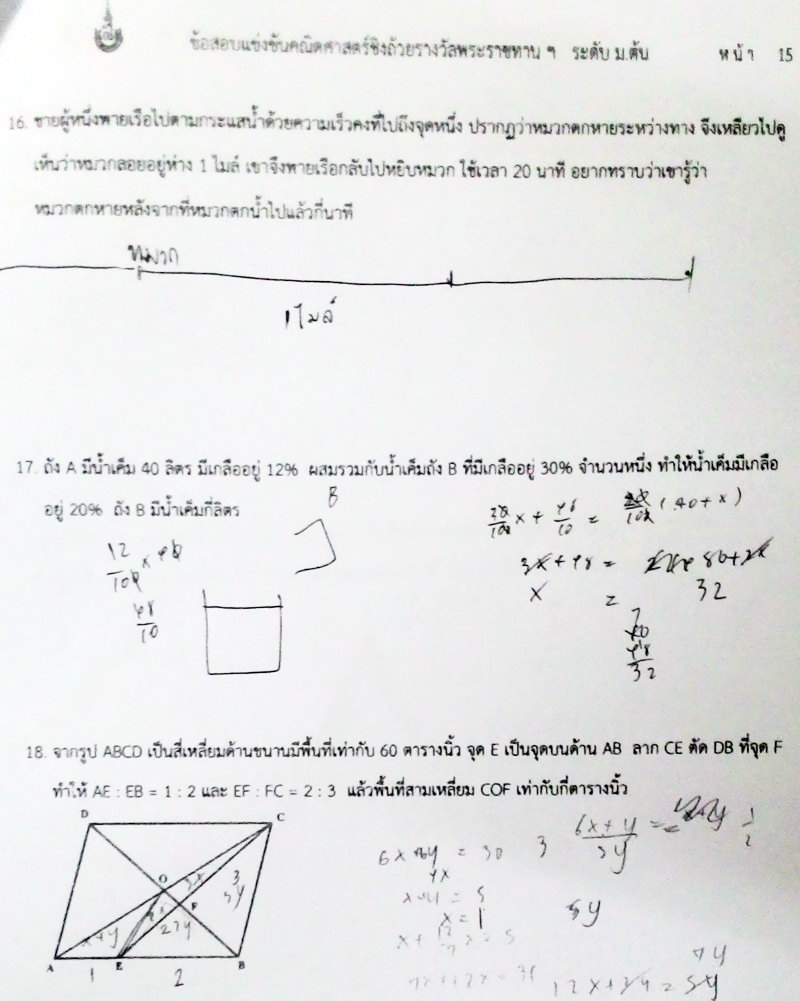 ข้อสอบแข่งขันคณิตศาสตร์ชิงถ้วยรางวัลพระราชทาน ฯ ระดับ ม.ต้น หน้า 15
16. ชายผู้หนึ่งพายเรือไปตามกระแสน้ำด้วยความเร็วคงที่ไปถึงจุดหนึ่ง ปรากฏว่าหมวกตกหายระหว่างทาง จึงเหลียวไปดู
เห็นว่าหมวกลอยอยู่ห่าง 1 ไมล์ เขาจึงพายเรือกลับไปหยิบหมวก ใช้เวลา 20 นาที อยากทราบว่าเขารู้ว่า
หมวกตกหายหลังจากที่หมวกตกน้ำไปแล้วกี่นาที
หมวก
1 ไมล์
17. ถัง A มีน้ำเค็ม 40 ลิตร มีเกลืออยู่ 12% ผสมรวมกับน้ำเค็มถัง B ที่มีเกลืออยู่ 30% จำนวนหนึ่ง ทำให้น้ำเค็มมีเกลือ
อยู่ 20% ถัง B มีน้ำเค็มกี่ลิตร
B
12/100 × 40
48/10
30/100 x + 48/10 = 20/100 (40 + x)
x = 32
48
32
18. จากรูป ABCD เป็นสี่เหลี่ยมด้านขนานมีพื้นที่เท่ากับ 60 ตารางนิ้ว จุด E เป็นจุดบนด้าน AB ลาก CE ตัด DB ที่จุด F
ทำให้ AE : EB = 1 : 2 และ EF : FC = 2 : 3 แล้วพื้นที่สามเหลี่ยม COF เท่ากับกี่ตารางนิ้ว
D C
O
F
A E B
3x
3
3y
2x
x+y
2y
1 2
= 30 3
6x+y
x = 1
5y
7y